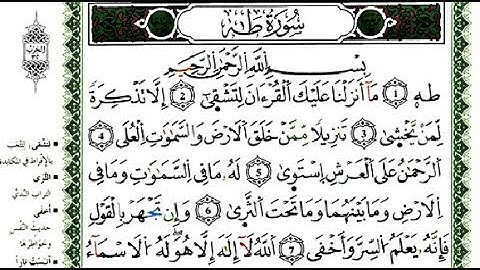 سُورَةُ طه
بِسْمِ اللَّهِ الرَّحْمَٰنِ الرَّحِيمِ
طه ① مَا أَنزَلْنَا عَلَيْكَ الْقُرْءَانَ لِتَشْقَىٰ ② إِلَّا تَذْكِرَةً
لِّمَن يَخْشَىٰ ③ تَنزِيلًا مِّمَّنْ خَلَقَ الْأَرْضَ وَالسَّمَٰوَٰتِ الْعُلَى ④
الرَّحْمَٰنُ عَلَى الْعَرْشِ اسْتَوَىٰ ⑤ لَهُ مَا فِي السَّمَٰوَٰتِ وَمَا فِي
الْأَرْضِ وَمَا بَيْنَهُمَا وَمَا تَحْتَ الثَّرَىٰ ⑥ وَإِن تَجْهَرْ بِالْقَوْلِ
فَإِنَّهُ يَعْلَمُ السِّرَّ وَأَخْفَى ⑦ اللَّهُ لَا إِلَٰهَ إِلَّا هُوَ لَهُ الْأَسْمَاءُ
لِتَشْقَى: لِتَتْعَب
بالإفراط في المكابدة
الثَّرَى
التراب النَّدِيّ
أَخْفَى
حديث النَّفس
وخواطرها
آنَسْتُ نَاراً